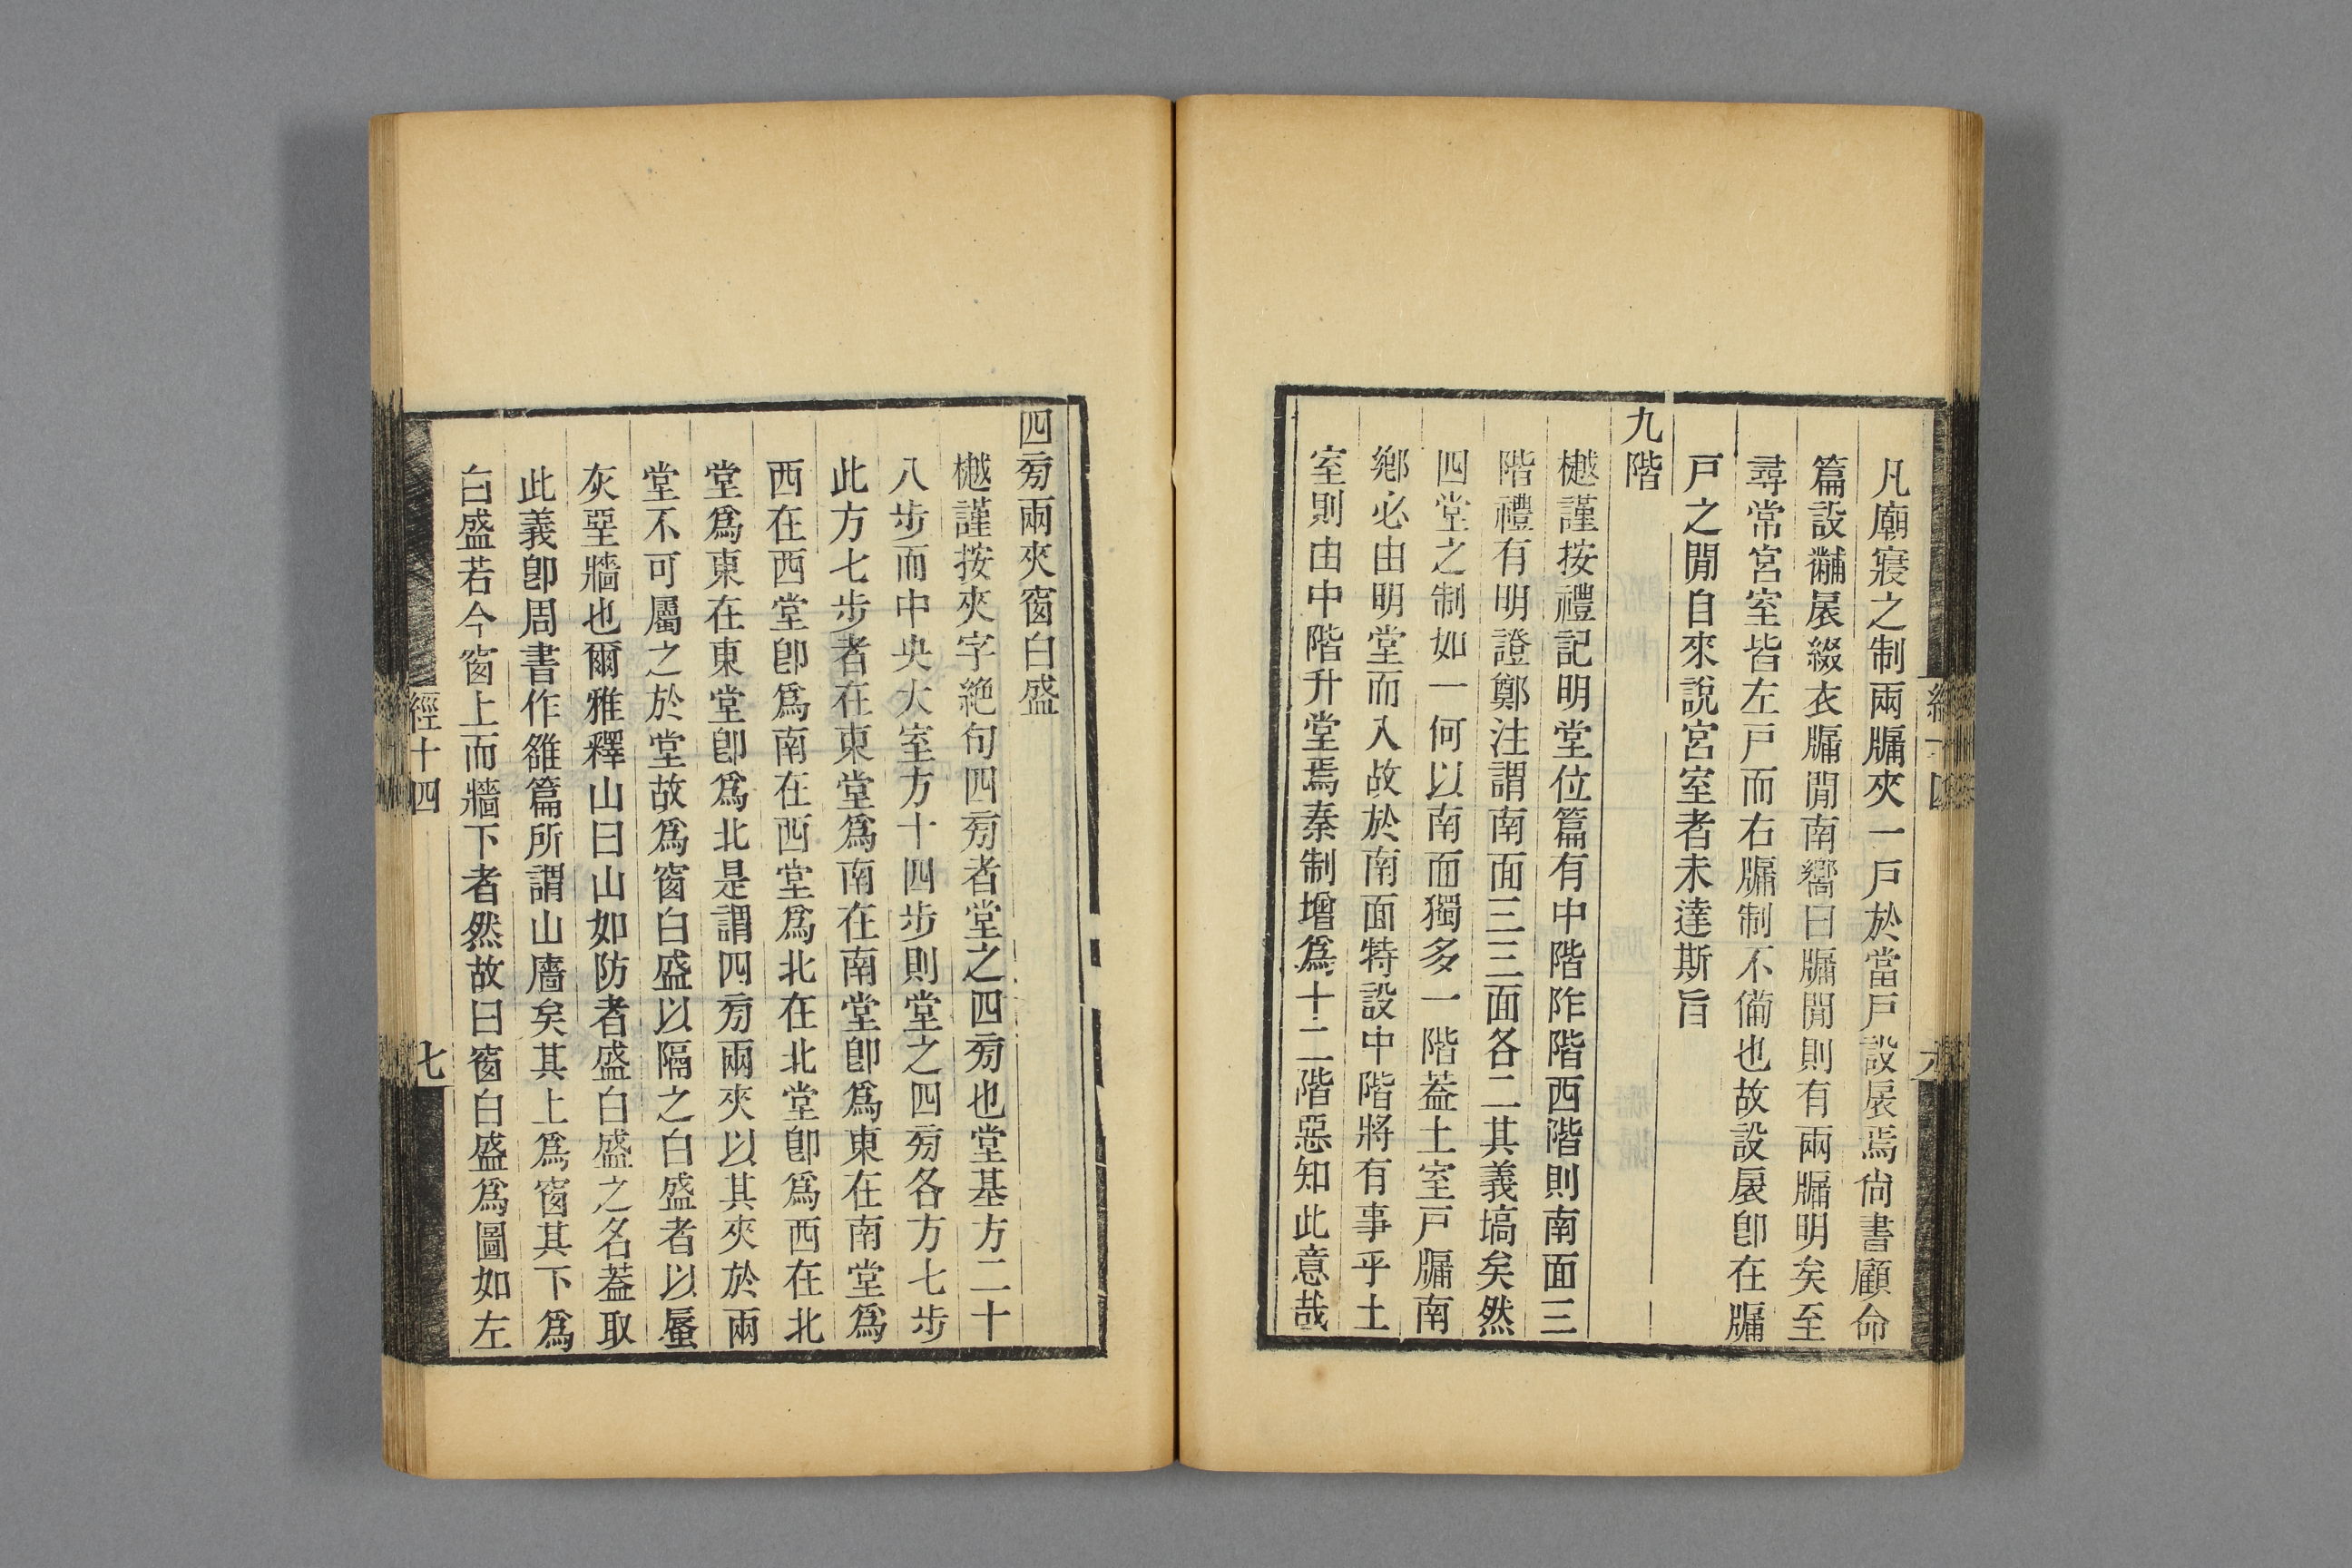 凡廟寢之制兩牖夾一戶於當戶設扆焉尙書顧命
篇設黼扆綴衣牖閒南嚮曰牖閒則有兩牖明矣至
尋常宮室皆左戶而右牖制不備也故設扆卽在牖
戶之閒自來說宮室者未達斯旨
九階
樾謹按禮記明堂位篇有中階阼階西階則南面三
階禮有明證鄭注謂南面三三面各二其義塙矣然
四堂之制如一何以南面獨多一階葢土室戶牖南
鄉必由明堂而入故於南面特設中階將有事乎土
室則由中階升堂焉秦制增爲十二階惡知此意哉
四㫄兩夾窗白盛
樾謹按夾字絶句四㫄者堂之四㫄也堂基方二十
八步而中央大室方十四步則堂之四㫄各方七步
此方七步者在東堂爲南在南堂卽爲東在南堂爲
西在西堂卽爲南在西堂爲北在北堂卽爲西在北
堂爲東在東堂卽爲北是謂四㫄兩夾以其夾於兩
堂不可屬之於堂故爲窗白盛以隔之白盛者以蜃
灰堊牆也爾雅釋山曰山如防者盛白盛之名葢取
此義卽周書作雒篇所謂山廧矣其上爲窗其下爲
白盛若今窗上而牆下者然故曰窗白盛爲圖如左
經十四
七